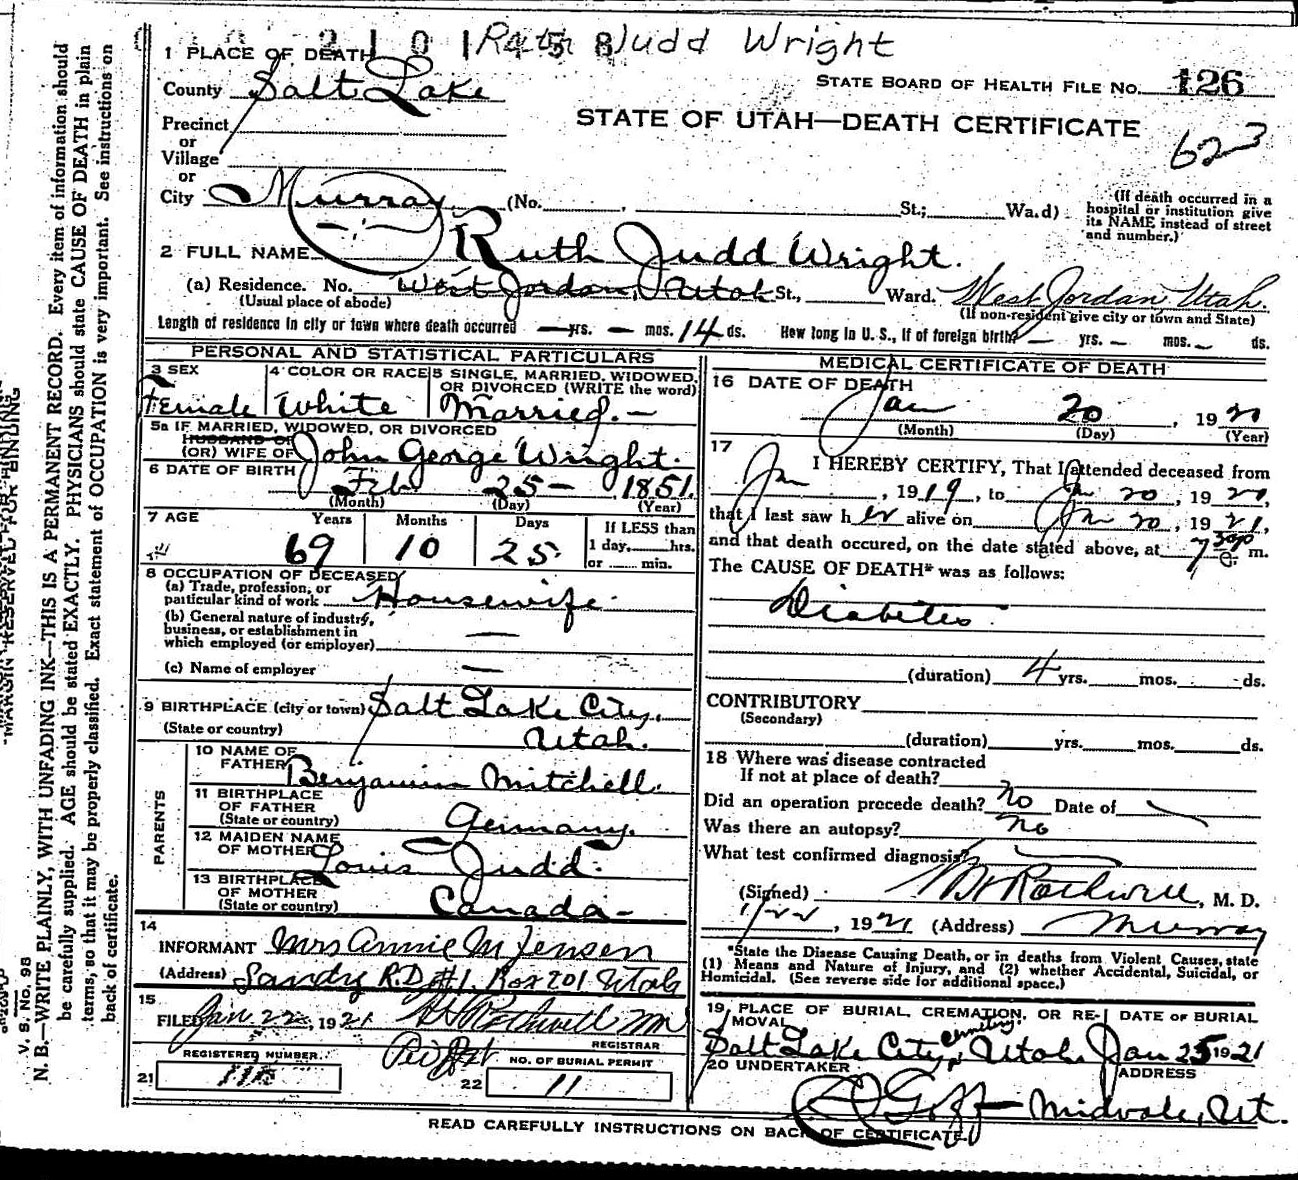 Ruth Judd Wright
1 PLACE OF DEATH
STATE BOARD OF HEALTH FILE NO. 126
County Salt Lake
STATE OF UTAH—DEATH CERTIFICATE
623
Precinct
or
Village
or
City Murray (No. St.; Ward)
(If death occurred in a hospital or institution give its NAME instead of street and number.)
2 FULL NAME Ruth Judd Wright.
(a) Residence. No. West Jordan, Utah St., Ward. West Jordan Utah.
(Usual place of abode) (If non-resident give city or town and State)
Length of residence in city or town where death occurred — yrs. — mos. 14 ds. How long in U. S., if of foreign birth? — yrs. — mos. — ds.
PERSONAL AND STATISTICAL PARTICULARS
3 SEX Female
4 COLOR OR RACE White
5 SINGLE, MARRIED, WIDOWED, OR DIVORCED (WRITE the word) Married. —
5a IF MARRIED, WIDOWED, OR DIVORCED
HUSBAND OF
(OR) WIFE OF John George Wright.
6 DATE OF BIRTH Feb 25 — 1851.
(Month) (Day) (Year)
7 AGE Years Months Days If LESS than
69 10 25 1 day, hrs.
or min.
8 OCCUPATION OF DECEASED
(a) Trade, profession, or
particular kind of work Housewife
(b) General nature of industry,
business, or establishment in
which employed (or employer) —
(c) Name of employer —
9 BIRTHPLACE (city or town) Salt Lake City,
(State or country) Utah.
PARENTS
10 NAME OF FATHER Benjamin Mitchell.
11 BIRTHPLACE OF FATHER
(State or country) Germany.
12 MAIDEN NAME OF MOTHER Louis Judd.
13 BIRTHPLACE OF MOTHER
(State or country) Canada —
14
INFORMANT Mrs Annie M Jensen
(Address) Sandy R.D #1. Box 201 Utah
15
FILED Jan 22, 1921
REGISTRAR
REGISTERED NUMBER
21
NO. OF BURIAL PERMIT
22 11
MEDICAL CERTIFICATE OF DEATH
16 DATE OF DEATH
Jan 20, 1920
(Month) (Day) (Year)
17 I HEREBY CERTIFY, That I attended deceased from
Jan, 1919, to Jan 20, 1920,
that I last saw her alive on Jan 20, 1921,
and that death occured, on the date stated above, at 7 30 P m.
The CAUSE OF DEATH* was as follows:
Diabetes
(duration) 4 yrs. mos. ds.
CONTRIBUTORY
(Secondary)
(duration) yrs. mos. ds.
18 Where was disease contracted
If not at place of death?
Did an operation precede death? no Date of
Was there an autopsy? no
What test confirmed diagnosis?
(Signed) Rothwell, M. D.
1/22, 1921 (Address) Murray
*State the Disease Causing Death, or in deaths from Violent Causes, state
(1) Means and Nature of Injury, and (2) whether Accidental, Suicidal, or
Homicidal. (See reverse side for additional space.)
19 PLACE OF BURIAL, CREMATION, OR REMOVAL DATE OF BURIAL
Salt Lake City, cemetery Utah. Jan 25 1921
20 UNDERTAKER ADDRESS
Goff — Midvale, Ut.
READ CAREFULLY INSTRUCTIONS ON BACK OF CERTIFICATE.
MARGIN RESERVED FOR BINDING
V. S. No. 98
N. B.—WRITE PLAINLY, WITH UNFADING INK—THIS IS A PERMANENT RECORD. Every item of information should
be carefully supplied. AGE should be stated EXACTLY. PHYSICIANS should state CAUSE OF DEATH in plain
terms, so that it may be properly classified. Exact statement of OCCUPATION is very important. See instructions on
back of certificate.